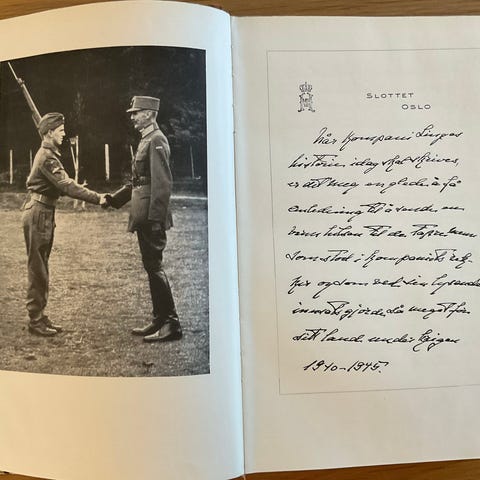 SLOTTET
OSLO
Når Kompani Linges
historie idag skal skrives,
er det meg en glede å få
anledning til å sende en
hilsen til de tapre menn
som stod i Kompaniets rek-
ker og som ved sin lysende
innsats gjorde så meget for
sitt land under krigen
1940-1945.